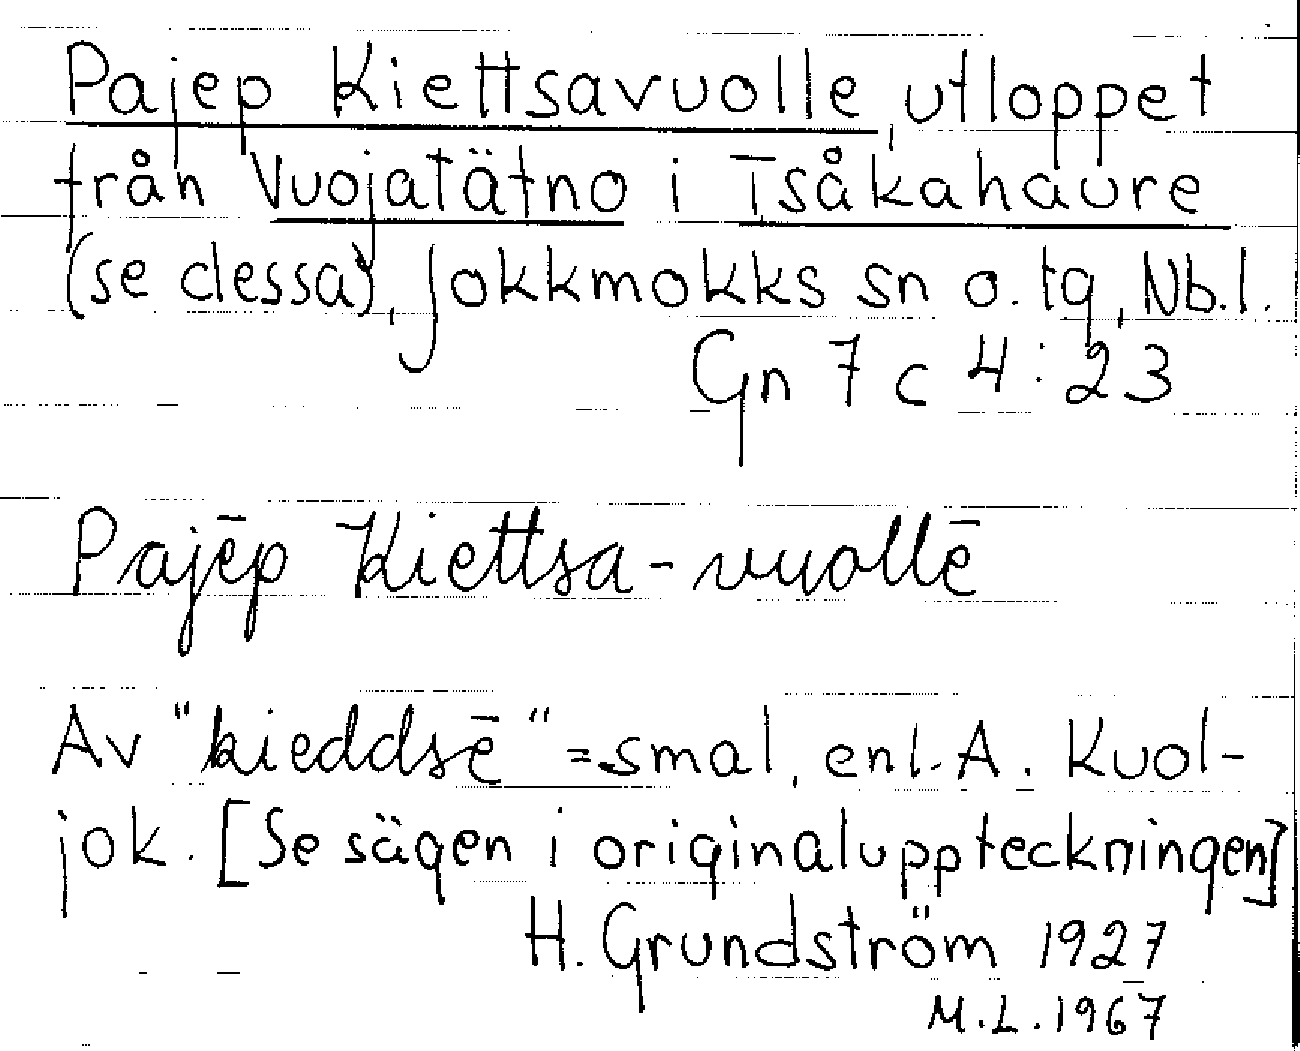 Pajep Kiettsavuolle, utloppet
från Vuojatätno i Tsåkahaure
(se dessa), Jokkmokks sn o. tg, Nb.l.
Gn 7 c 4:23
Pajēp Kiettsa-vuollē
Av "kieddsē" = smal, enl. A. Kuol-
jok. [Se sägen i originaluppteckningen]
H. Grundström 1927
M.L. 1967